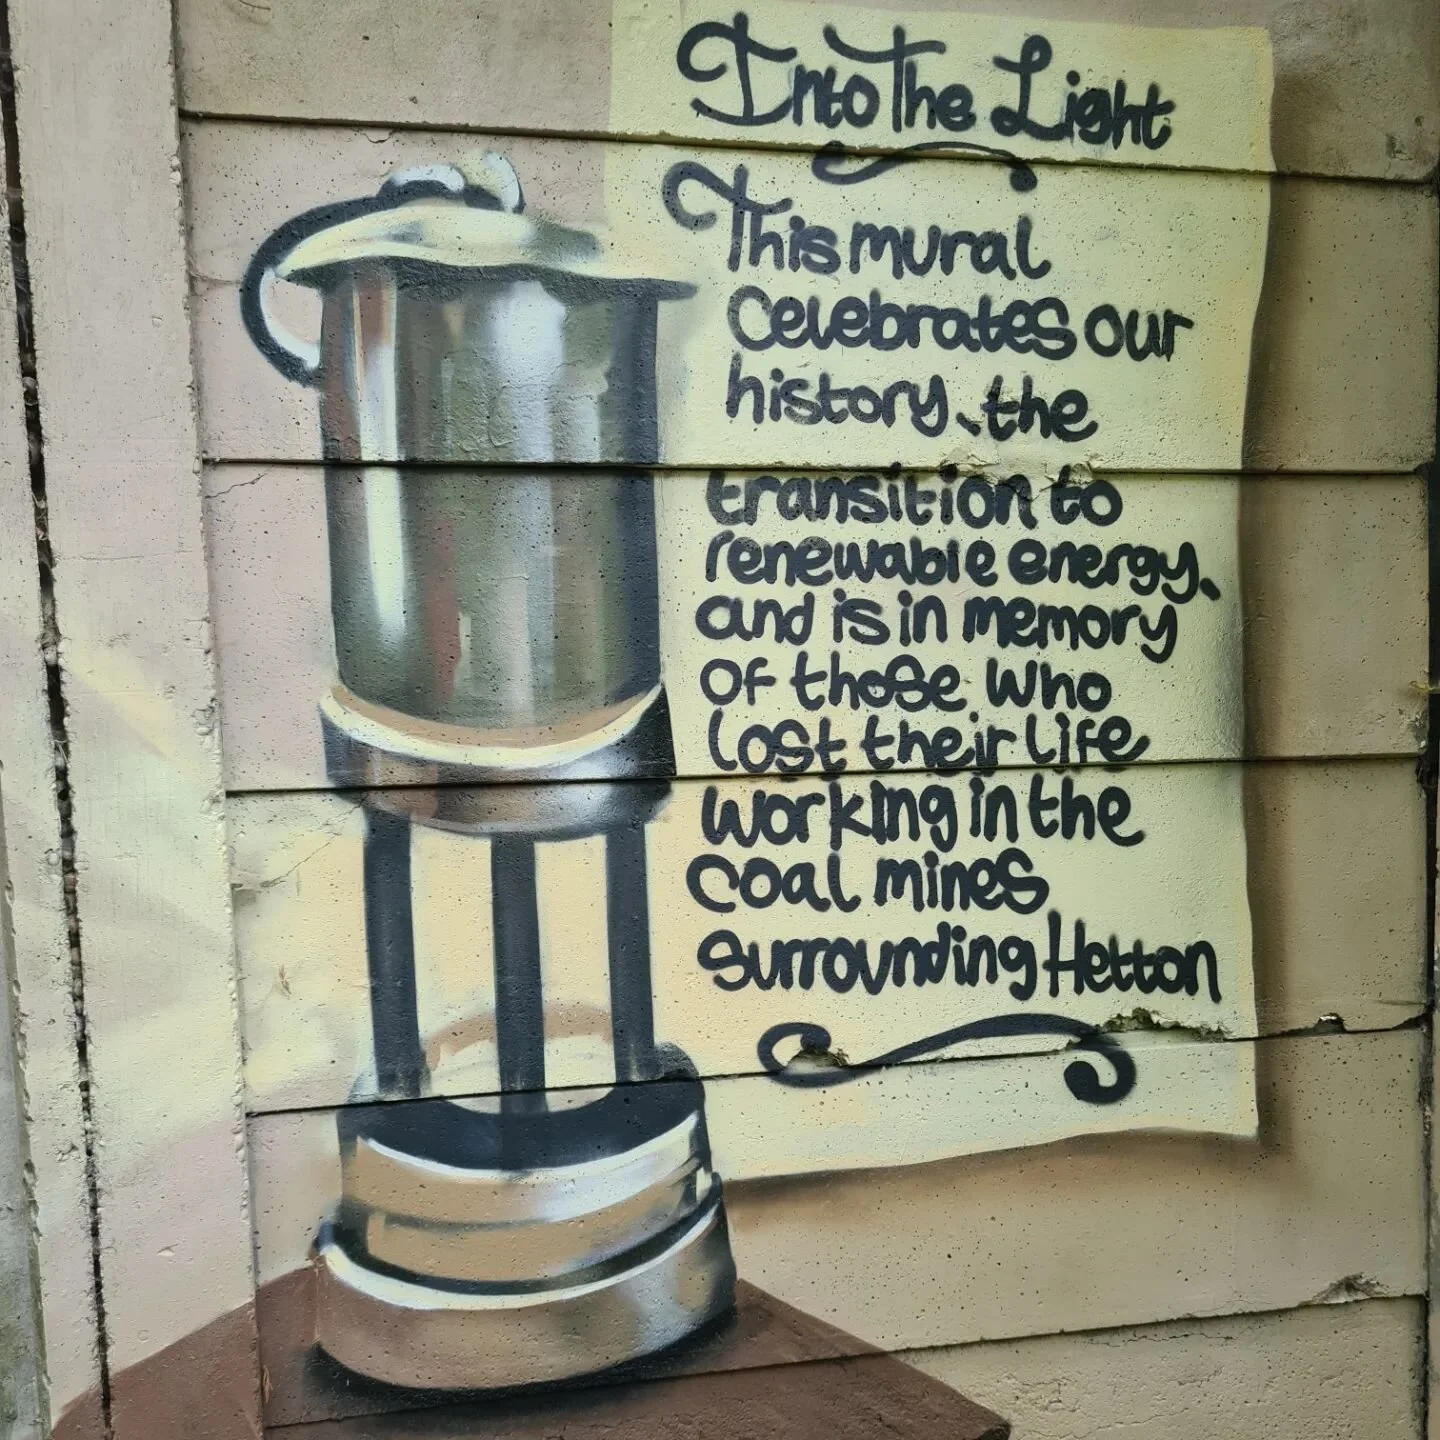 Into The Light
This mural
Celebrates our
history, the
transition to
renewable energy,
and is in memory
of those who
lost their life
working in the
coal mines
surrounding Hetton